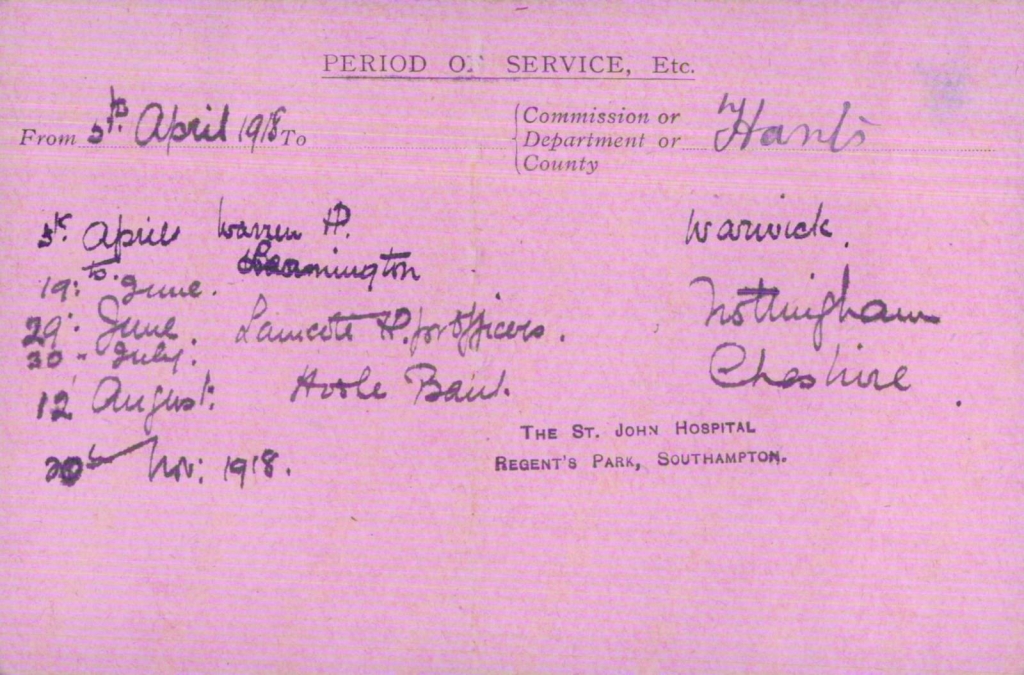 PERIOD OF SERVICE, Etc.
From 5th April 1918 To
Commission or Department or County Hants
5th April Warren H. Warwick.
19th June. Leamington
29th June. Lamcote H. for Officers. Nottingham
30 " July.
12 August. Hoole Bank. Cheshire
20th Nov: 1918.
THE ST. JOHN HOSPITAL
REGENT'S PARK, SOUTHAMPTON.